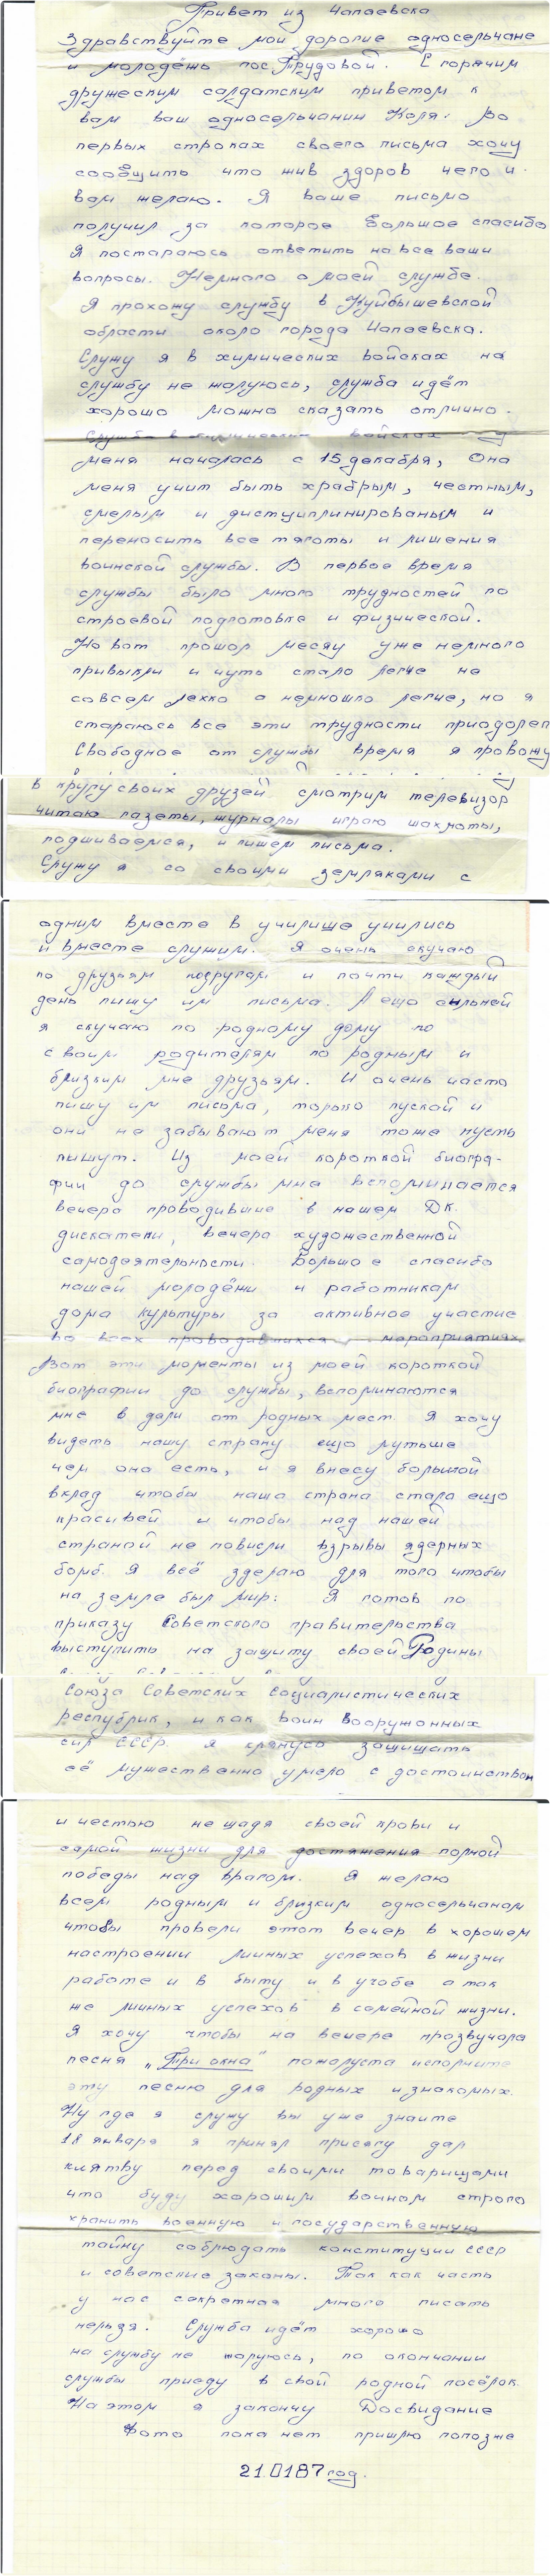 Привет из Чапаевска
Здравствуйте мои дорогие односельчане
и молодёжь пос. Трудовой. С горячим
дружеским солдатским приветом к
вам ваш односельчанин Коля. Во
первых строках своего письма хочу
сообщить что жив здоров чего и
вам желаю. Я ваше письмо
получил за которое большое спасибо
Я постараюсь ответить на все ваши
вопросы. Немного о моей службе.
Я прохожу службу в Куйбышевской
области около города Чапаевска.
Служу я в химических войсках на
службу не жалуюсь, служба идёт
хорошо можно сказать отлично.
Служба в химических войсках у
меня началась с 15 декабря, Она
меня учит быть храбрым, честным,
смелым и дистциплинированым и
переносить все тяготы и лишения
воинской службы. В первое время
службы было много трудностей по
строевой подготовке и физической.
Но вот прошол месяц уже немного
привыкли и чуть стало легче не
совсем лехко а немношко легче, но я
стараюсь все эти трудности приодолеть
Свободное от службы время я провожу
в кругу своих друзей смотрим телевизор
читаю газеты, журналы играю шахматы,
подшиваемся, и пишем письма.
Служу я со своими земляками с
одним вместе в училище учились
и вместе служим. Я очень скучаю
по друзьям подругам и почти каждый
день пишу им письма. А ещо сильней
я скучаю по родному дому по
своим родителям по родным и
близким мне друзьям. И очень часто
пишу им письма, только пускай и
они не забывают меня тоже пусть
пишут. Из моей короткой биогра-
фии до службы мна вспоминается
вечера проводившие в нашем ДК.
дискатеки, вечера художественной
самодеятельности. Большое спасибо
нашей молодёжи и работникам
дома культуры за активное участие
во всех проводившихся мероприятиях
Вот эти моменты из моей короткой
биографии до службы, вспоминаются
мне в дали от родных мест. Я хочу
видеть нашу страну ещо лутьше
чем она есть, и я внесу большой
вклад чтобы наша страна стала ещо
красивей и чтобы над нашей
страной не повисли взрывы ядерных
бомб. Я всё зделаю для того чтобы
на земле был мир. Я готов по
приказу Советского правительства
выступить на защиту своей Родины
Союза Советских Социалистических
республик, и как воин Вооружонных
сил СССР. я клянусь защищать
её мужественно умело с достоинством
и честью не щадя своей крови и
самой жизни для достяжения полной
победы над врагом. Я желаю
всем родным и близким односельчанам
чтобы провели этот вечер в хорошем
настроении личных успехов в жизни
работе и в быту и в учобе а так
же личных успехов в семейной жизни.
Я хочу чтобы на вечере прозвучала
песня „Три окна" пожалуста исполните
эту песню для родных и знакомых.
Ну где я служу вы уже знаите
18 января я принял присягу дал
клятву перед своими товарищами
что буду хорошим воином строго
хранить военную и государственную
тайну соблюдать конституции СССР
и советские законы. Так как часть
у нас секретная много писать
нельзя. Служба идёт хорошо
на службу не жалуюсь, по окончании
службы приеду в свой родной посёлок.
На этом я закончу Досвидание
Фото пока нет пришлю попозже
21.0187 год.